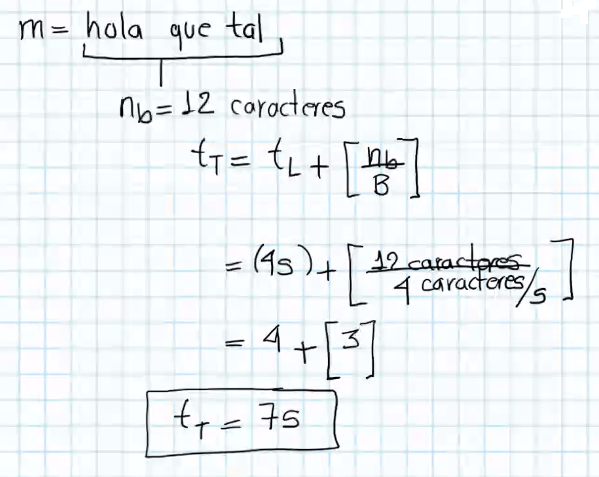 m = hola que tal
n_b = 12 caracteres
t_T = t_L + [n_b / B]
= (4s) + [12 caracteres / 4 caracteres/s]
= 4 + [3]
t_T = 7s